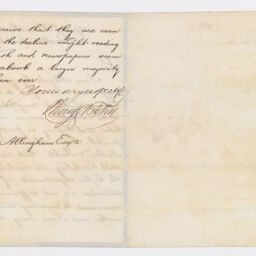 ceive that they are even
the decline Light reading
ok and newspapers seem
absorb a larger majority
an ever.
Yours very respectfy
Henry G Bohn
Allingham Esqre